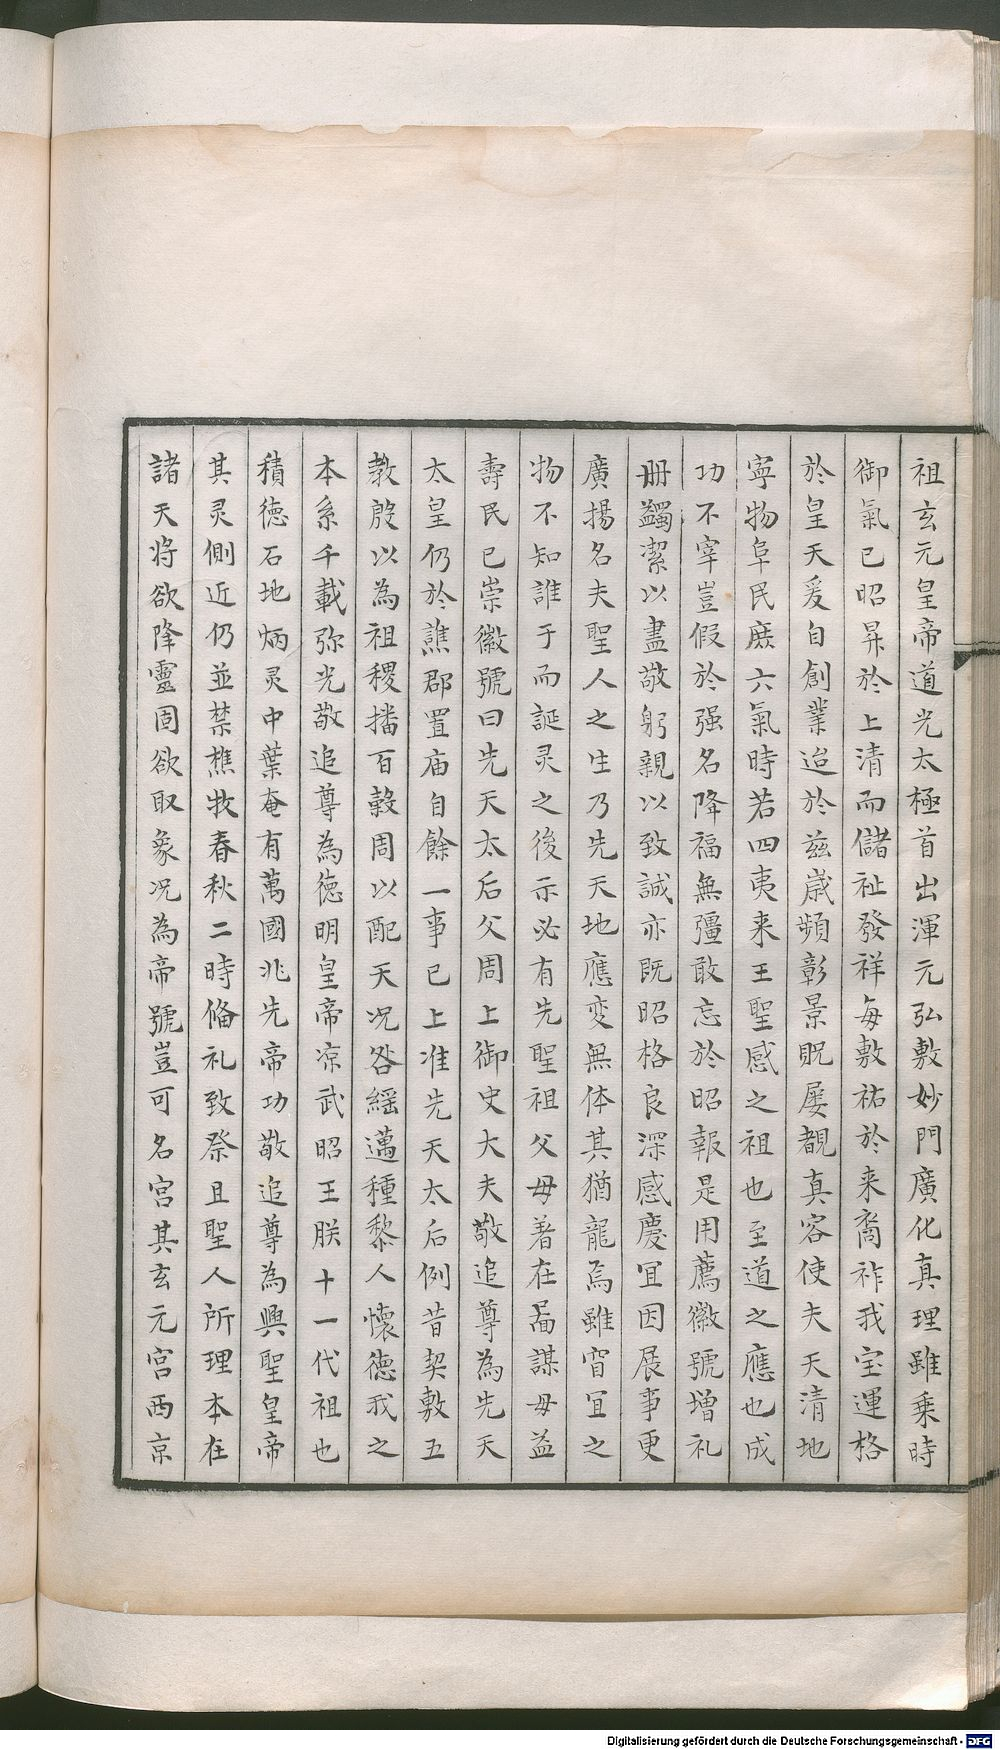 祖玄元皇帝道光太極首出渾元弘敷妙門廣化真理雖乗時
御氣已昭昇於上清而儲祉發祥每敷祐於来裔祚我宝運格
於皇天爰自創業迨於兹嵗頻彰景貺屡覩真容使夫天清地
寧物阜民庶六氣時若四夷来王聖感之祖也至道之應也成
功不宰豈假於强名降福無彊敢忘於昭報是用薦徽號增礼
册蠲潔以盡敬躬親以致誠亦既昭格良深感慶冝因展事更
廣揚名夫聖人之生乃先天地應变無体其猶龍焉雖窅冝之
物不知誰于而誕灵之後示必有先聖祖父母著在啚諜母益
壽民已崇徽號曰先天太后父周上御史大夫敬追尊為先天
太皇仍於譙郡置庙自餘一事已上准先天太后例昔契敷五
教殷以為祖稷播百穀周以配天况咎繇邁種黎人懷徳我之
本系千載弥光敬追尊為徳明皇帝凉武昭王朕十一代祖也
積徳石地炳灵中葉奄有萬國兆先帝功敬追尊為興聖皇帝
其灵側近仍並禁樵牧春秋二時俻礼致祭且聖人所理本在
諸天将欲降靈固欲取象况為帝號豈可名宫其玄元宫西京
Digitalisierung gefördert durch die Deutsche Forschungsgemeinschaft - DFG